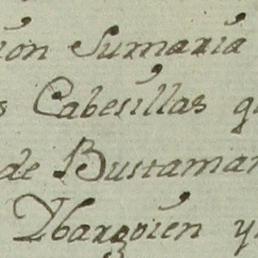 ión Sumaria
s Cabesillas q
de Bustaman
Ybargoien y